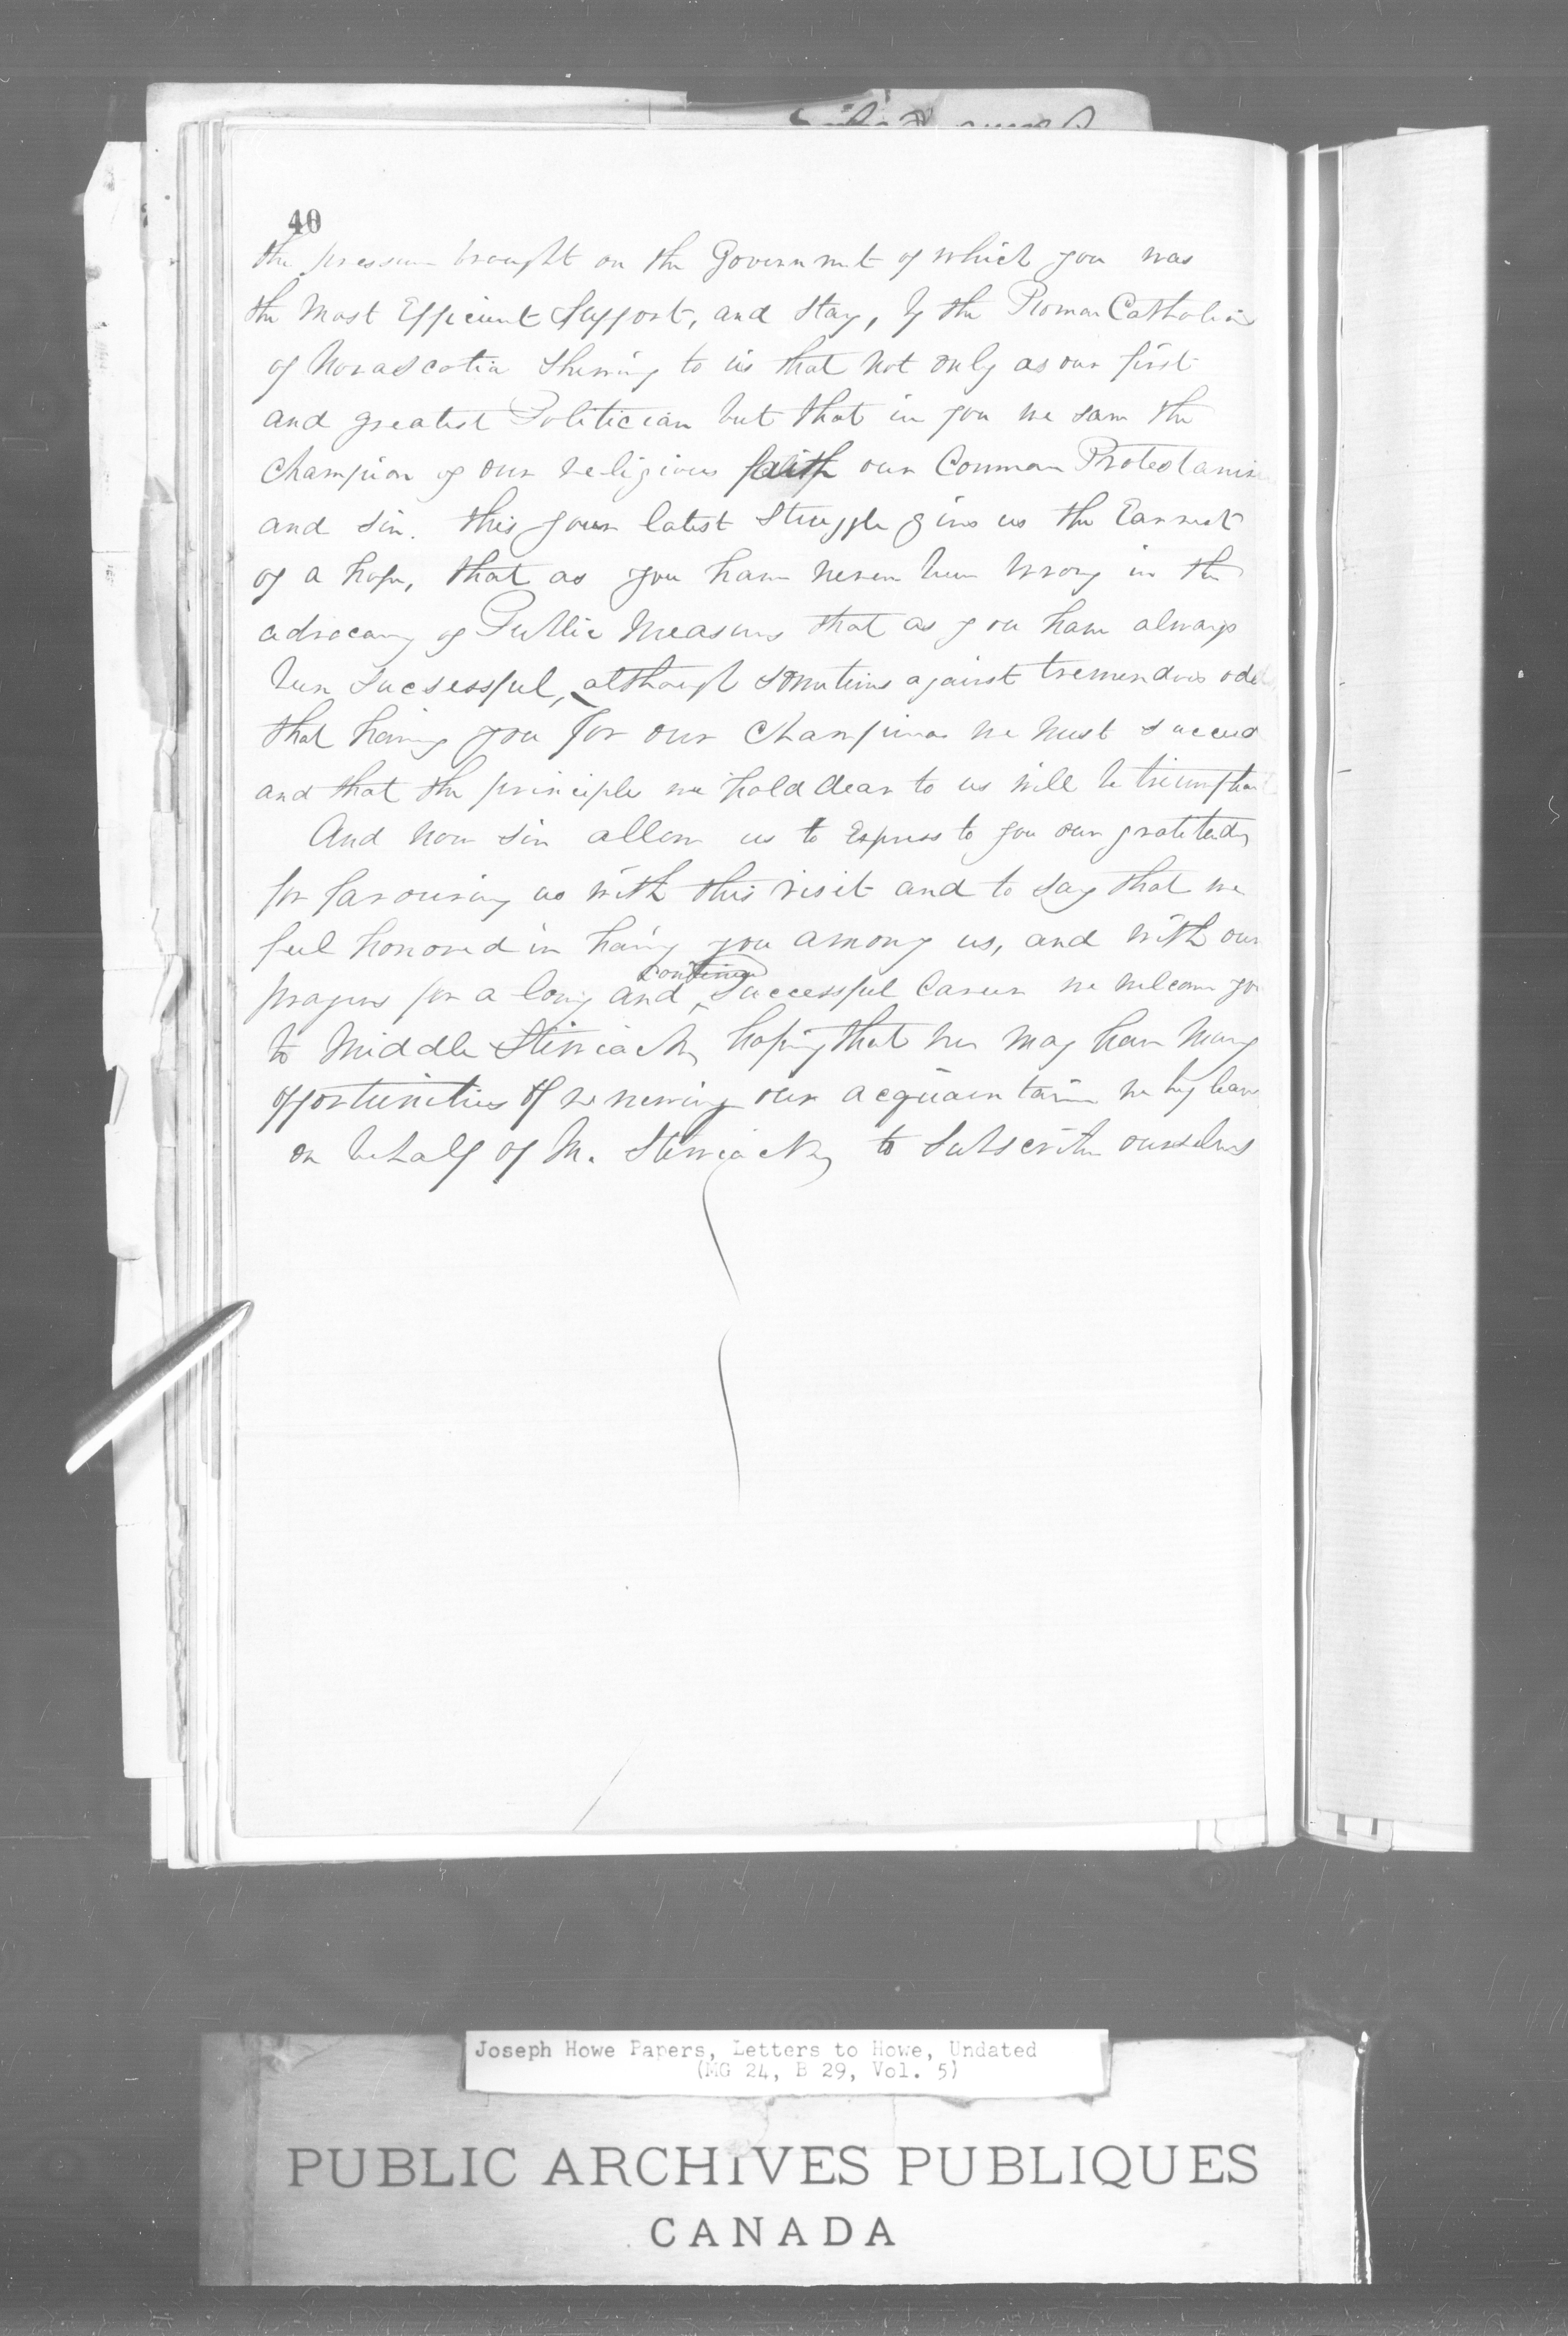 40
the pressure brought on the Government of which you was
the Most Efficient Support, and Stay, by the Roman Catholics
of Nova Scotia Shewing to us that not only as our first
and greatest Politician but that in you we saw the
Champion of our religious faith our Common Protestanism
and Sir. this your latest Struggle gives us the Earnest
of a hope, that as you have never been wrong in the
advocacy of Public Measures that as you have always
been Sucsessful, although Sometimes against tremendous odds,
that having you for our Champion we must succeed
and that the principles we hold dear to us will be triumphant
And now Sir allow us to Express to you our gratitude
for favouring us with this visit and to say that we
feel honored in having you among us, and with our
continued
prayers for a long and Successful Career we welcome you
to Middle Stewiacke, hoping that we may have many
opportunities of renewing our acquaintance we beg leave
on behalf of M. Stewiacke, to Subscribe ourselves
Joseph Howe Papers, Letters to Howe, Undated
(MG 24, B 29, Vol. 5)
PUBLIC ARCHIVES PUBLIQUES
CANADA